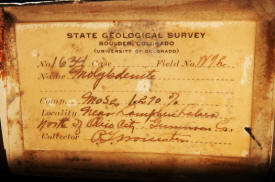 STATE GEOLOGICAL SURVEY
BOULDER, COLORADO
(UNIVERSITY OF COLORADO)
No. 1634 Case Field No.
Name Molybdenite
Comp. MoS2
Locality Near Lamphere Lakes
North of Ohio City. Gunnison Co.
Collector